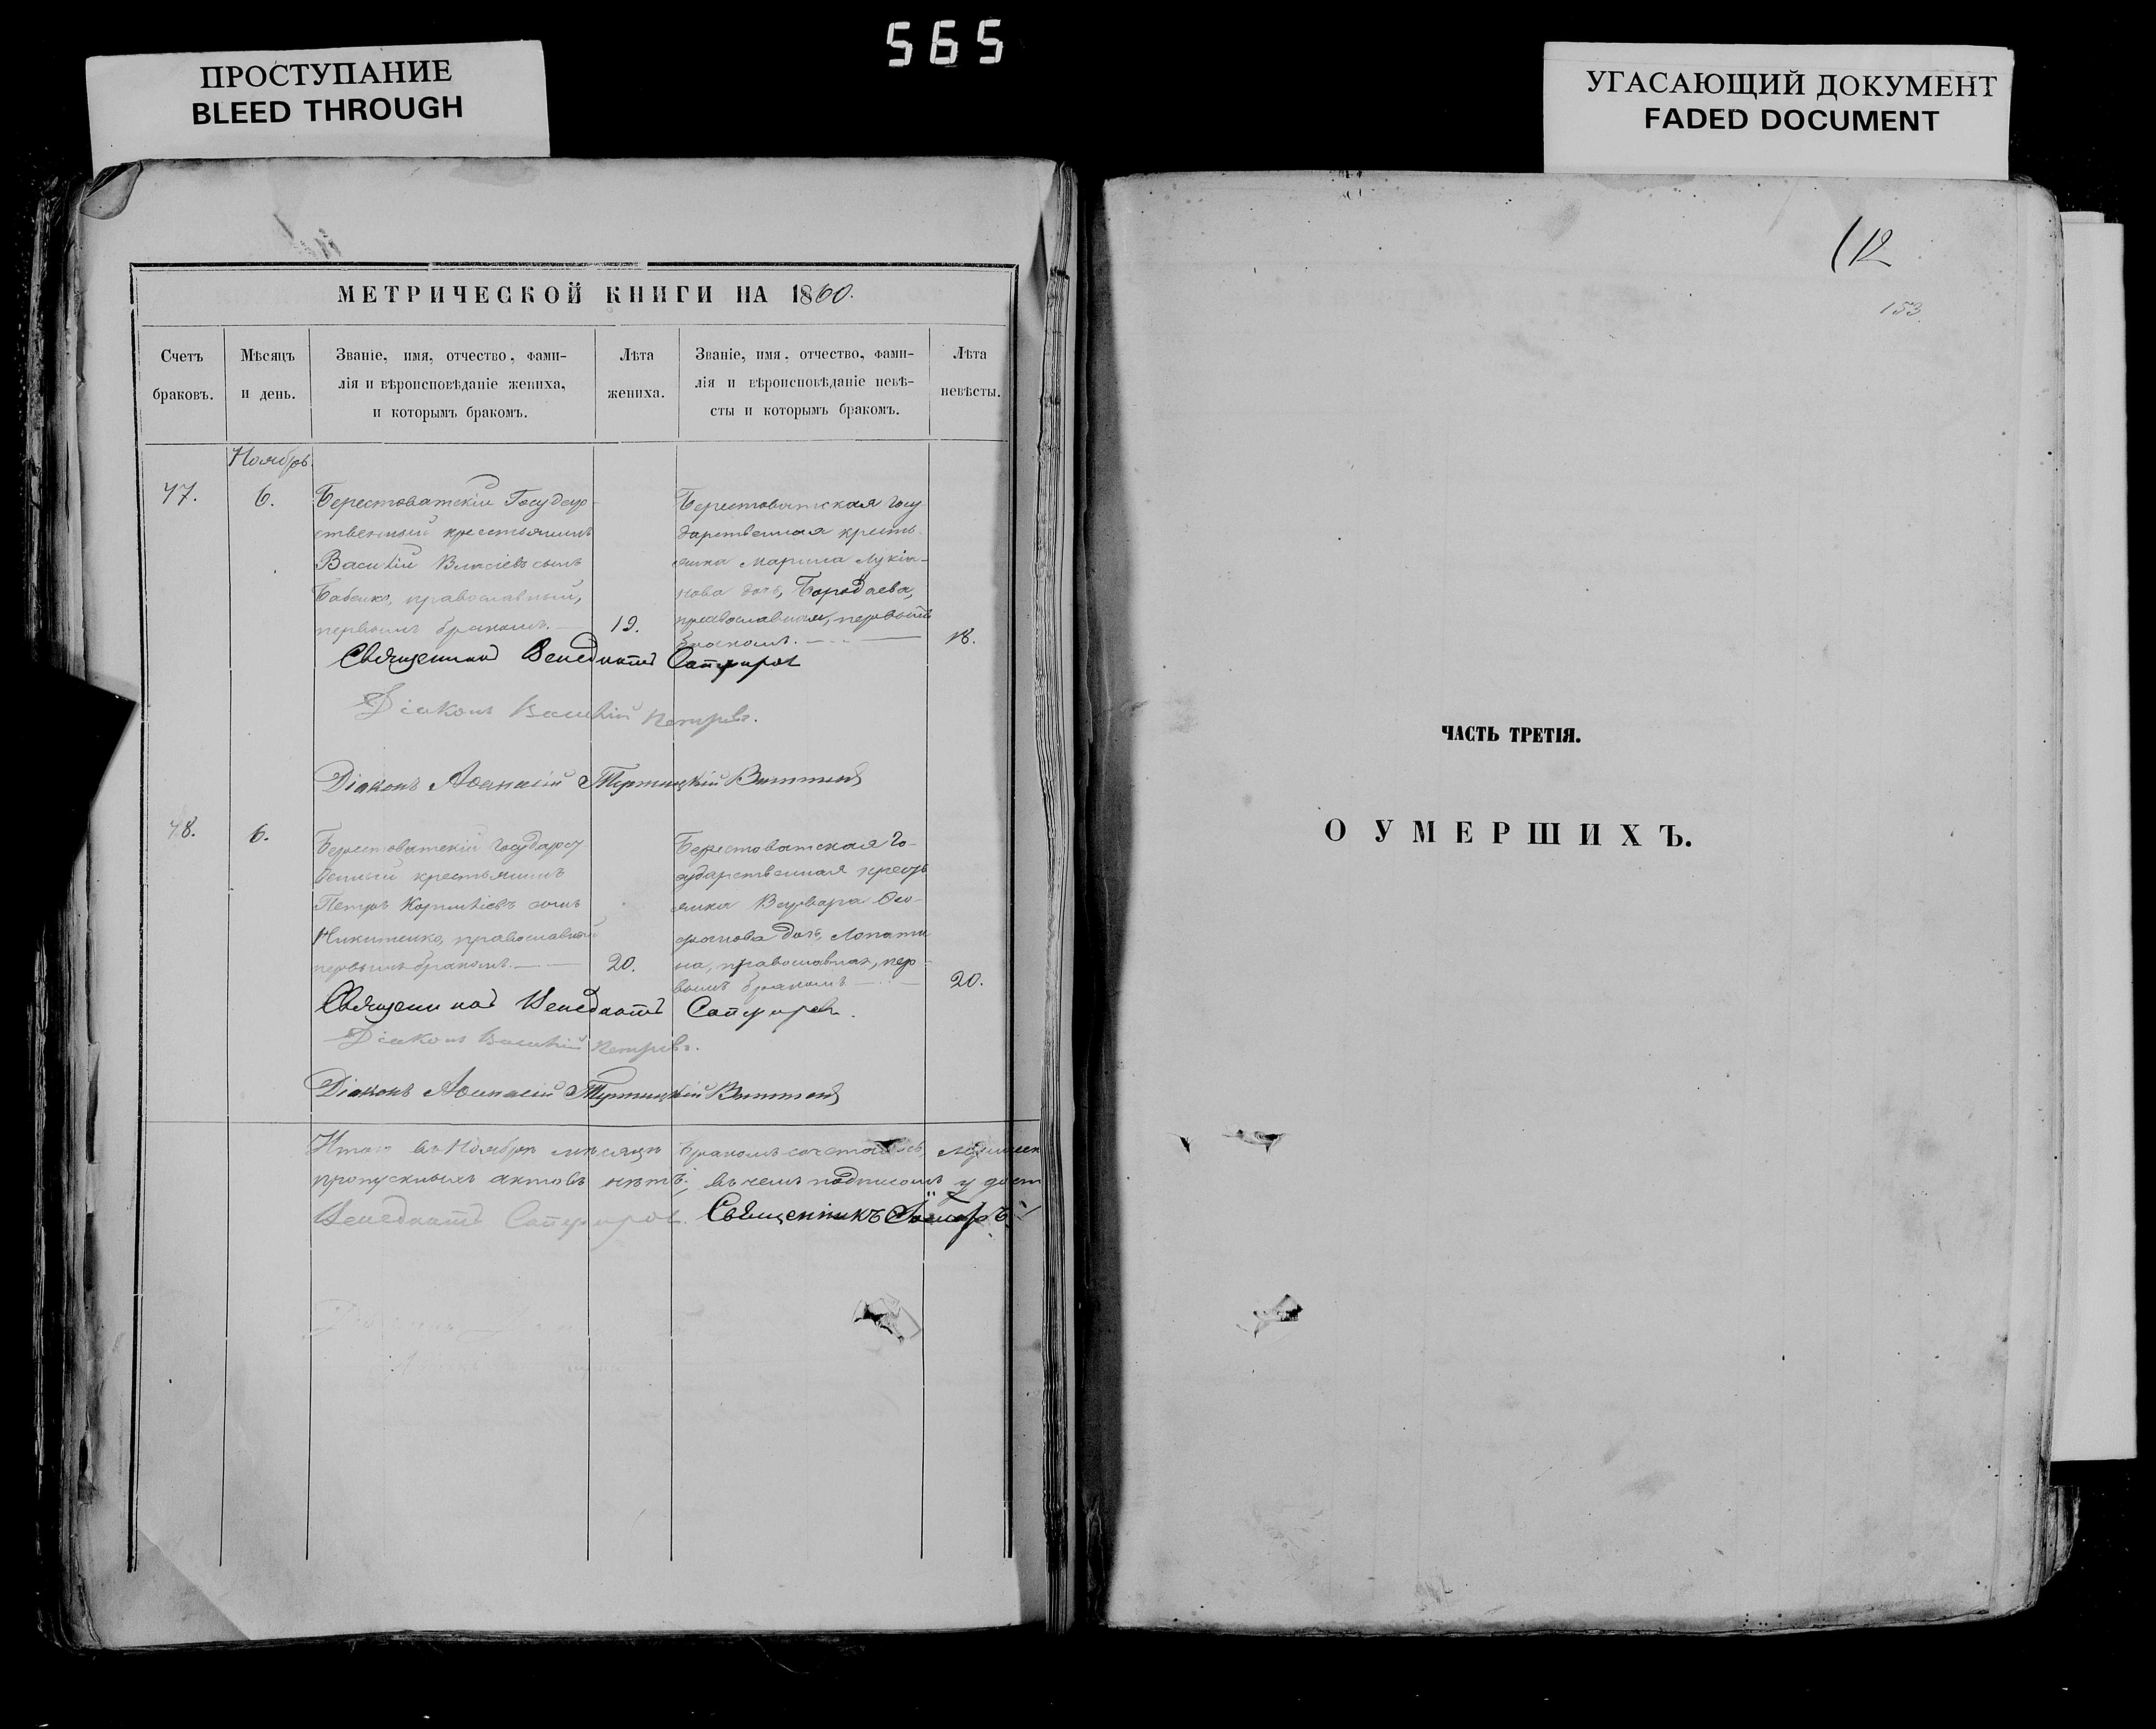 565
ПРОСТУПАНИЕ
BLEED THROUGH
УГАСАЮЩИЙ ДОКУМЕНТ
FADED DOCUMENT
МЕТРИЧЕСКОЙ КНИГИ НА 1860.
Счетъ браковъ.
Мѣсяцъ и день.
Званіе, имя, отчество, фами-
лія и вѣроисповѣданіе жениха,
и которымъ бракомъ.
Лѣта жениха.
Званіе, имя, отчество, фами-
лія и вѣроисповѣданіе невѣ-
сты и которымъ бракомъ.
Лѣта невѣсты.
Ноябрь.
47.
6.
Берестоватскій Государ-
ственный крестьянинъ
Василій Власіевъ сынъ
Бабенко, православный,
первымъ бракомъ.
19.
Берестоватская Госу
дарственная кресть
янка Марина Лукіа-
нова дочь, Бородаева,
православная, первымъ
бракомъ.
18.
Священникъ Венедиктъ Сапфировъ
Діаконъ Василій Петровъ.
Діаконъ Аѳанасій
48.
6.
Берестоватскій Государст
венный крестьянинъ
Петръ Корниліевъ сынъ
Никитенко, православный
первымъ бракомъ.
20.
Берестоватская Го-
сударственная кресть
янка Варвара Ѳео-
фанова дочь, Лопати
на, православная, пер
вымъ бракомъ
20.
Священникъ Венедиктъ Сапфировъ.
Діаконъ Василій Петровъ.
Діаконъ Аѳанасій
Итого въ Ноябрѣ мѣсяцѣ бракомъ
пропускныхъ актовъ нѣтъ; въ чемъ подписомъ
Венедиктъ Сапфировъ. Священникъ
112
153
ЧАСТЬ ТРЕТІЯ.
О УМЕРШИХЪ.